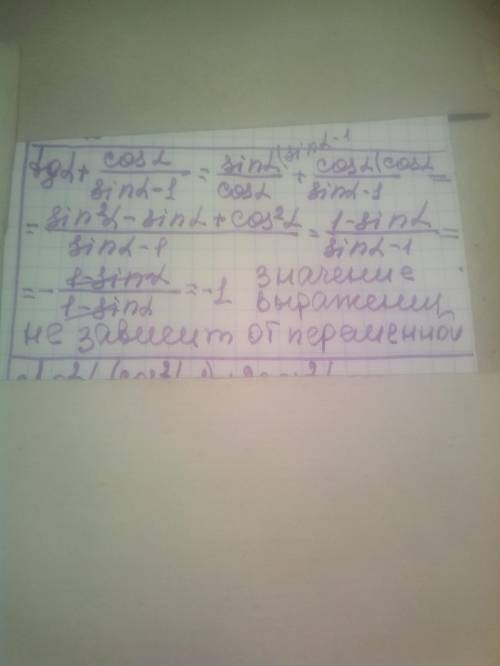 tgα + cosα/(sinα-1) = sinα/cosα (sinα-1 + cosα/(sinα-1) (cosα =
= (sin²α - sinα + cos²α)/(sinα-1) = (1-sinα)/(sinα-1) =
= -(1-sinα)/(1-sinα) = -1 значение
выражения
не зависит от переменной